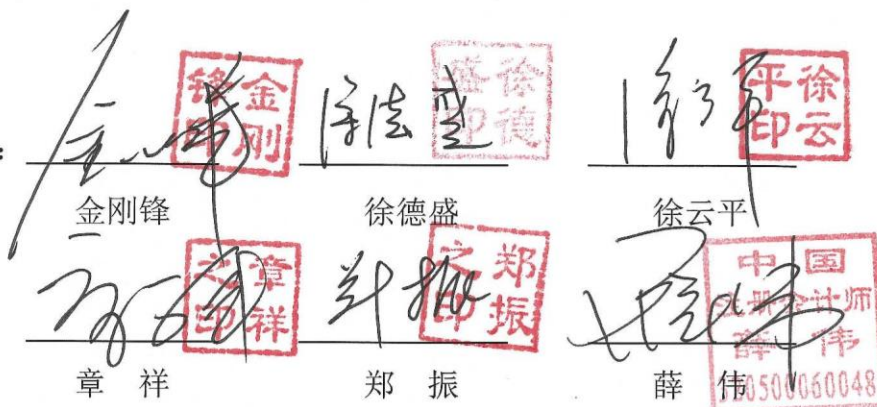 金刚锋印 徐德盛印 徐云平印
金刚锋 徐德盛 徐云平
章祥之印 郑振之印 中国
注册会计师
薛伟
320500060048
章 祥 郑 振 薛 伟